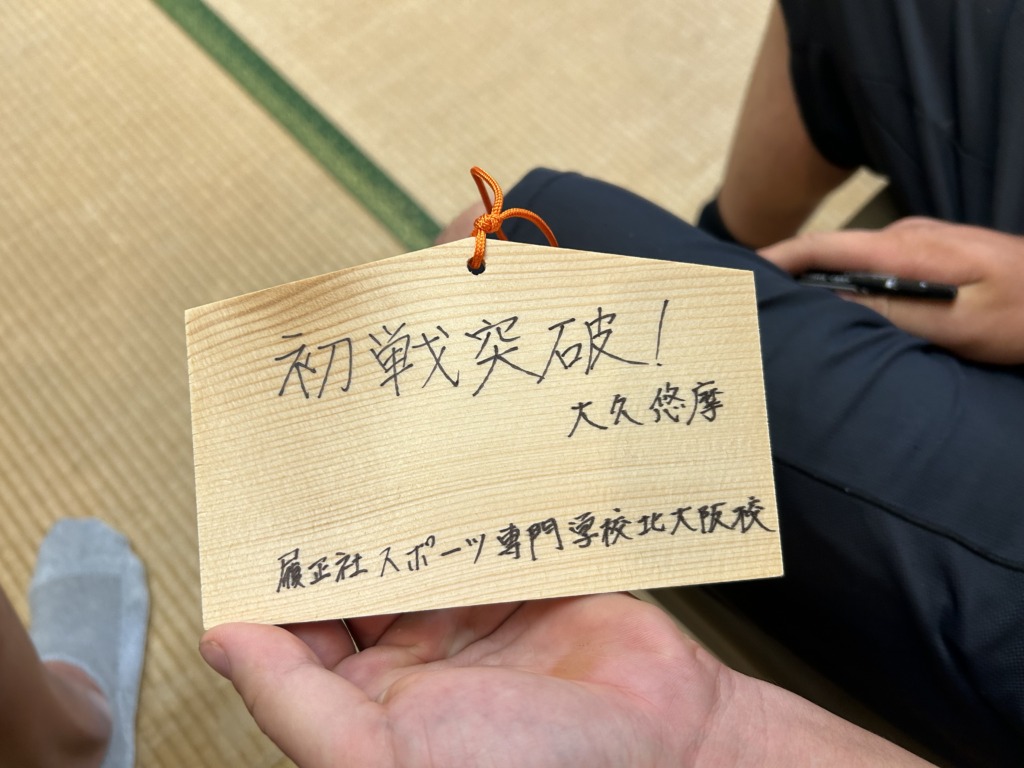 初戦突破!
大久悠摩
履正社スポーツ専門学校北大阪校